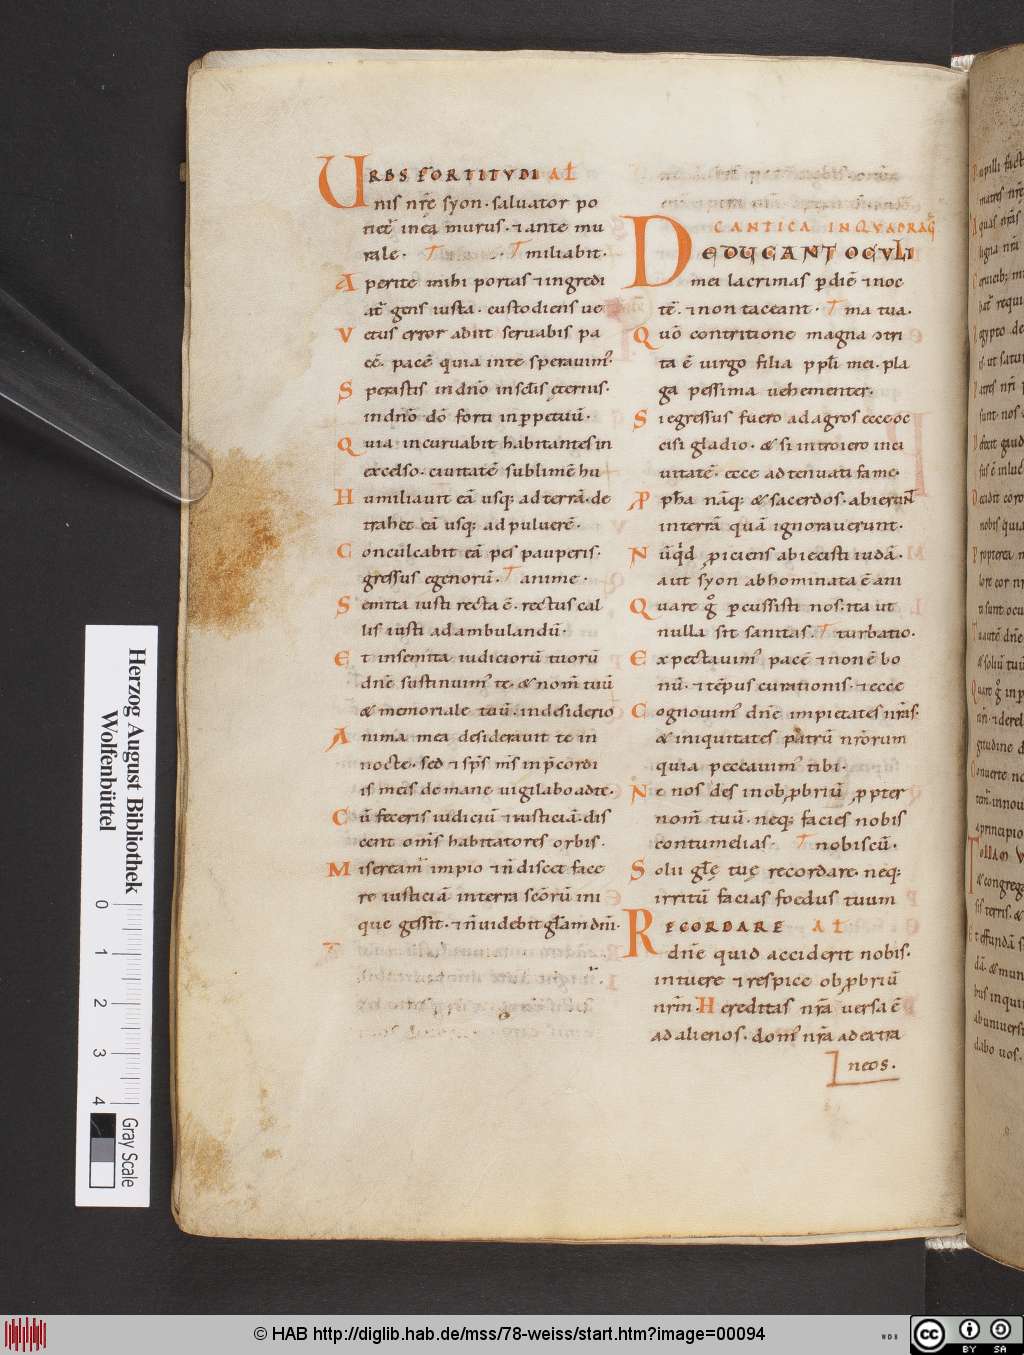 URBS FORTITUDI AL
nis nr̄ę syon. saluator po
net᷑ in ea murus. ⁊ ante mu
rale. T T miliabit.
Aperite mihi portas ⁊ ingredi
at᷑ gens iusta. custodiens ue
Vetus error abiit seruabis pa
cē. pacē quia inte sperauim᷒.
Sperastis in dn̄o in sclīs ęternis.
in dn̄o dō forti inꝑpetuū.
Quia incuruabit habitantes in
excelso. ciuitatē sublimē hu
Humiliauit eā usq; ad terrā. de
trahet eā usq; ad puluerē.
Conculcabit eā pes pauperis.
gressus egenorū. T anime.
Semita iusti recta ē. rectus cal
lis iusti ad ambulandū.
Et in semita iudiciorū tuorū
dn̄e sustinuim᷒ te. & nom̄ tuū
& memoriale tuū. in desiderio
Anima mea desiderauit te in
nocte. sed ⁊ sp̄s m̄s in p̄cordi
is meis de mane uigilabo ad te.
Cū feceris iudiciū ⁊ iusticiā. dis
cent om̄s habitatores orbis.
Miseream᷑ impio ⁊ n̄ discet face
re iusticiā in terra sc̄orū ini
que gessit. ⁊ n̄ uidebit gl̄am dn̄i.
CANTICA IN QVADRAG̅
DEDUCANT OCULI
mei lacrimas ꝑ diē ⁊ noc
tē. ⁊ non taceant. T ma tua.
Quō contritione magna ɔtri
ta ē uirgo filia ppl̄i mei. pla
ga pessima uehementer.
Si egressus fuero ad agros ecce oc
cisi gladio. & si introiero in ci
uitatē. ecce adtenuati fame.
Pph̄a nāq; & sacerdos. abierunt
in terrā quā ignorauerunt.
Nūqͥd ꝓiciens abiecisti iudā.
aut syon abhominata ē ani
Quare gͦ ꝑcussisti nos. ita ut
nulla sit sanitas. T turbatio.
Expectauim᷒ pacē ⁊ non ē bo
nū. ⁊ tēpus curationis. ⁊ ecce
Cognouim᷒ dn̄e impietates nr̄as.
& iniquitates patrū nr̄orum
quia peccauim᷒ tibi.
Ne nos des in obꝓbriū ꝓpter
nom̄ tuū. neq; facies nobis
contumelias. T nobiscū.
Solii gl̄ę tuę recordare. neq;
irritū facias foedus tuum
RECORDARE AL
dn̄e quid acciderit nobis.
intuere ⁊ respice obꝓbriū
nr̄m. Hereditas nr̄a uersa ē
ad alienos. dom᷒ nr̄a ad extra
neos.
Herzog August Bibliothek
Wolfenbüttel
0 1 2 3 4
Gray Scale
© HAB http://diglib.hab.de/mss/78-weiss/start.htm?image=00094
WDB
cc BY SA